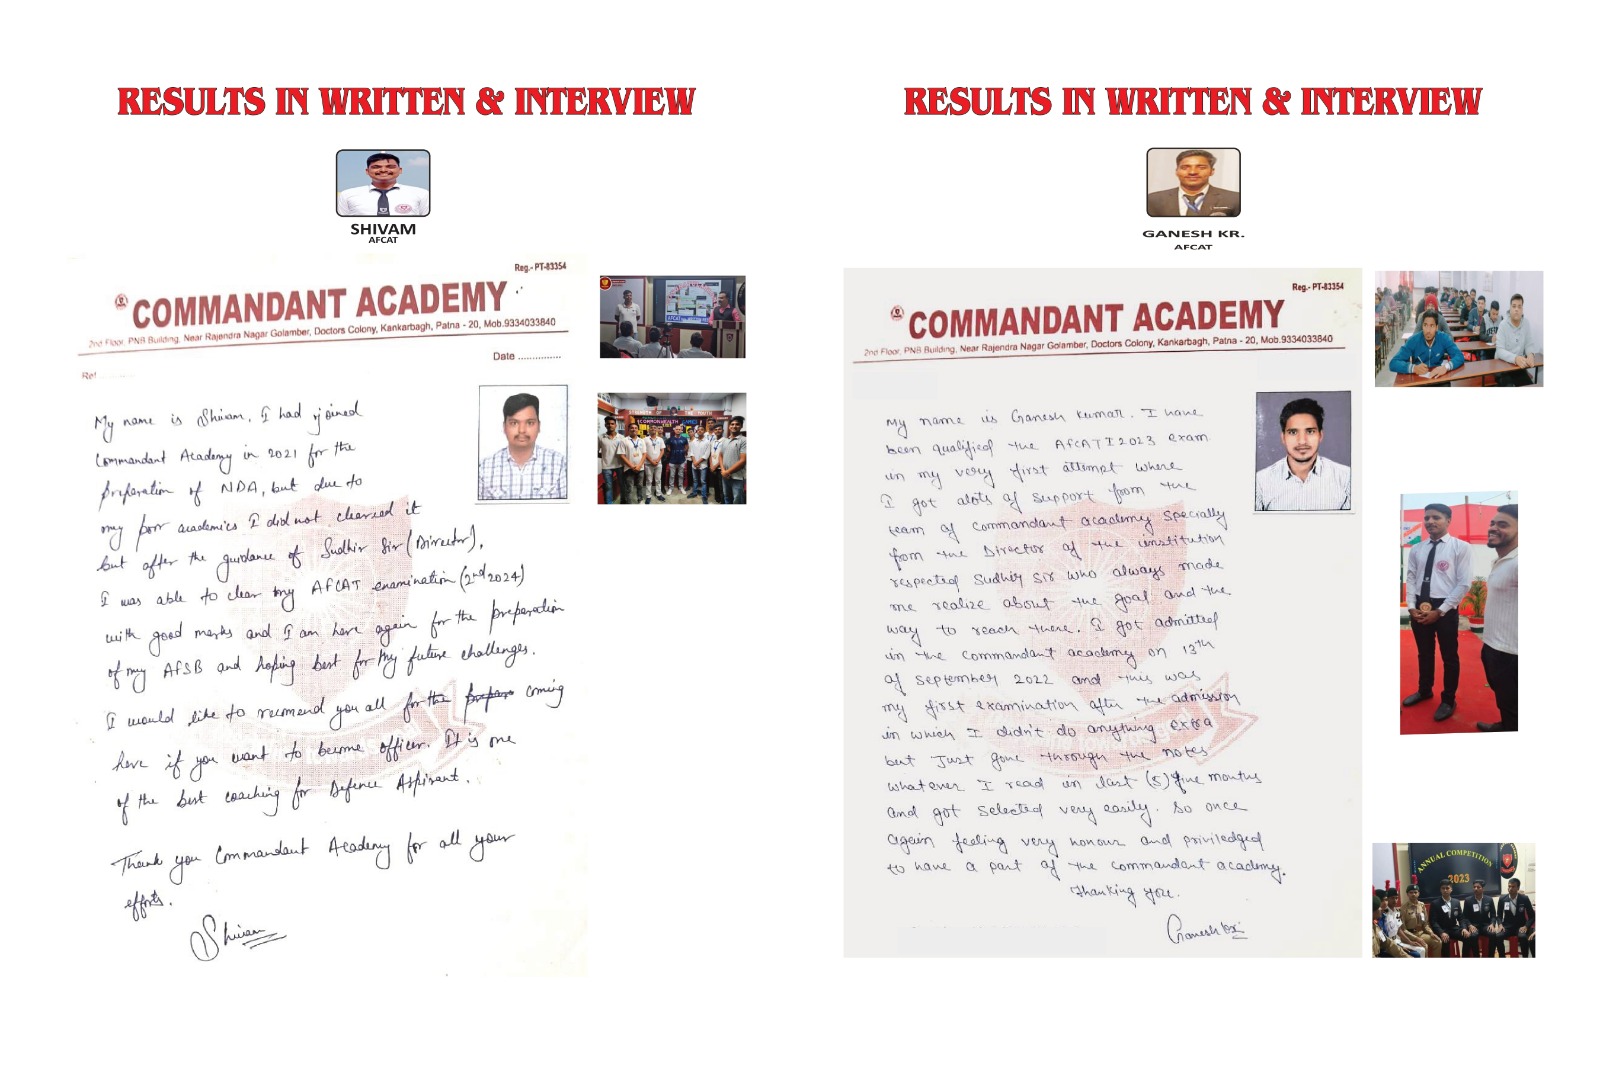 RESULTS IN WRITTEN & INTERVIEW
SHIVAM
AFCAT
Reg.- PT-83354
COMMANDANT ACADEMY
2nd Floor, PNB Building, Near Rajendra Nagar Golamber, Doctors Colony, Kankarbagh, Patna - 20, Mob.9334033840
Date ..............
Ref ............
My name is Shivam. I had joined
Commandant Academy in 2021 for the
preparation of NDA, but due to
my poor academics I did not cleared it
but after the guidance of Sudhir Sir (Director),
I was able to clear my AFCAT examination (2nd 2024)
with good marks and I am here again for the preparation
of my AFSB and hoping best for my future challenges.
I would like to recomend you all for the coming
here if you want to become officer. It is one
of the best coaching for Defence Aspirant.
Thank you Commandant Academy for all your
efforts.
Shivam
STRENGTH OF THE YOUTH
COMMONWEALTH
RESULTS IN WRITTEN & INTERVIEW
GANESH KR.
AFCAT
Reg.- PT-83354
COMMANDANT ACADEMY
2nd Floor, PNB Building, Near Rajendra Nagar Golamber, Doctors Colony, Kankarbagh, Patna - 20, Mob.9334033840
My name is Ganesh Kumar. I have
been qualified the AFCAT I 2023 exam
in my very first attempt where
I got alots of support from the
team of commandant academy specially
from the Director of the institution
respected Sudhir Sir who always made
me realize about the goal and the
way to reach there. I got admitted
in the commandant academy on 13th
of september 2022 and this was
my first examination after the admission
in which I didn't do anything extra
but Just gone through the notes
whatever I read in last (5) five months
and got selected very easily. So once
again feeling very honour and priviledged
to have a part of the commandant academy.
Thanking you.
Ganesh Kr
ANNUAL COMPETITION
2023